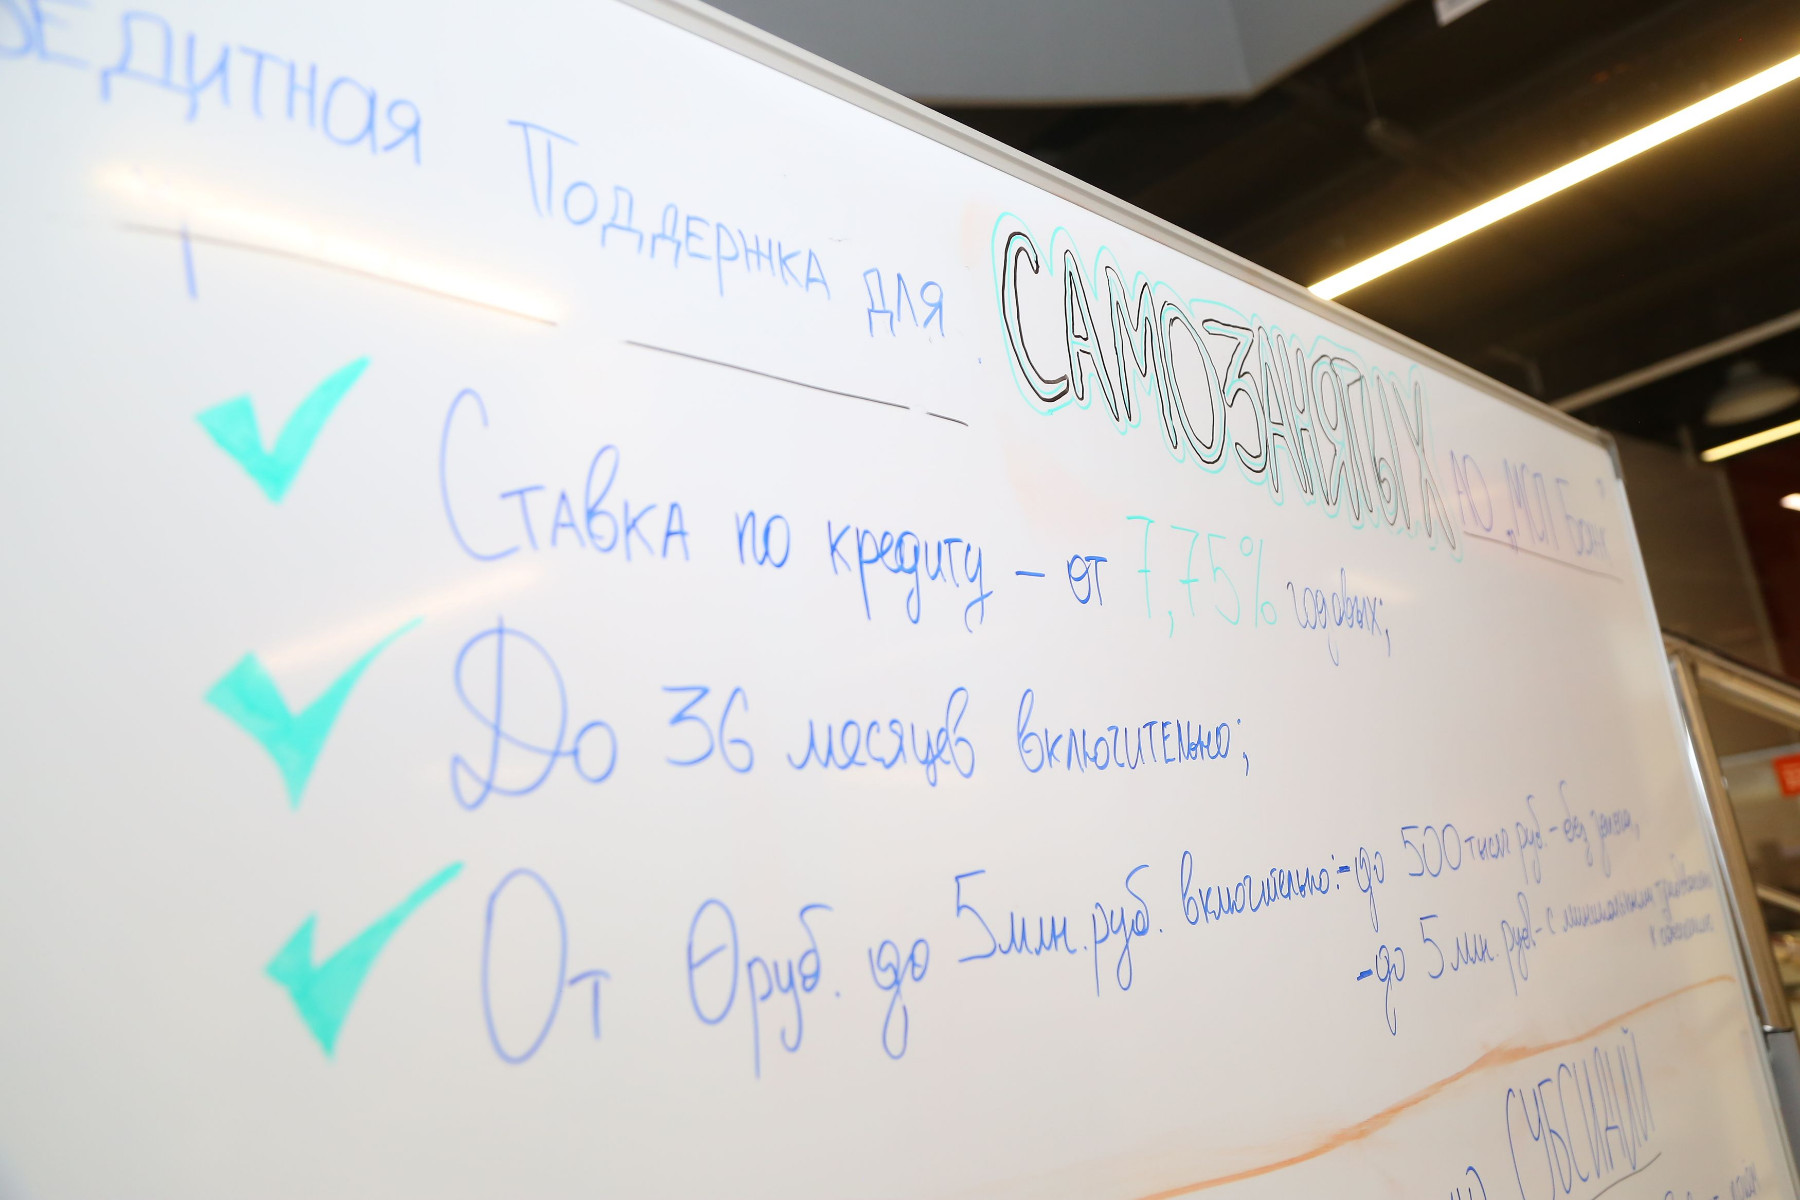 едитная Поддержка для САМОЗАНЯТЫХ АО "МСП Банк"
Ставка по кредиту – от 7,75% годовых;
До 36 месяцев включительно;
От 0 руб. до 5 млн. руб. включительно: - до 500 тысяч руб. - без залога,
- до 5 млн. рублей - с минимальными требованиями
к
СУБСИДИЙ